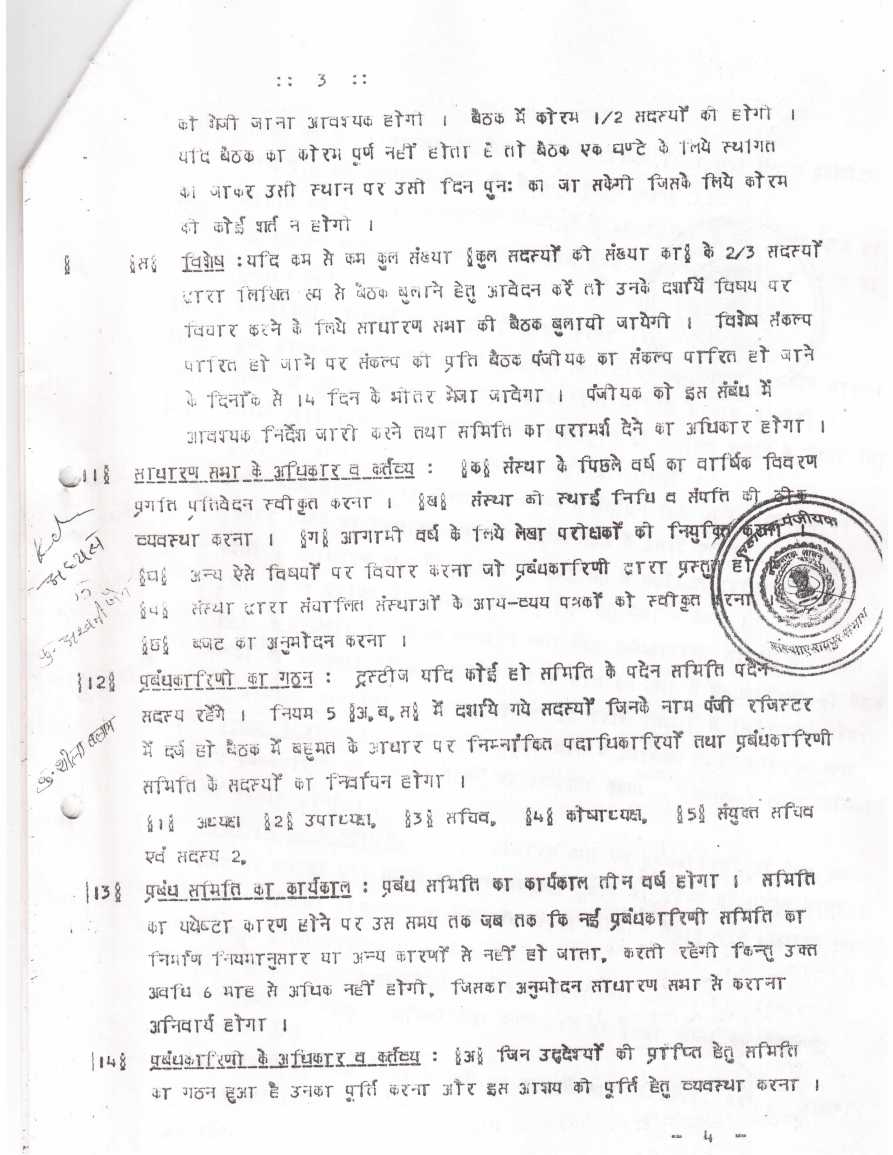 :: 3 ::
को भेजी जाना आवश्यक होगी । बैठक में कोरम 1/2 सदस्यों की होगी ।
यदि बैठक का कोरम पूर्ण नहीं होता है तो बैठक एक घण्टे के लिये स्थगित
की जाकर उसी स्थान पर उसी दिन पुन: की जा सकेगी जिसके लिये कोरम
की कोई शर्त न होगी ।
§ §स§ विशेष :यदि कम से कम कुल संख्या §कुल सदस्यों की संख्या का§ के 2/3 सदस्यों
द्वारा लिखित रूप से बैठक बुलाने हेतु आवेदन करें तो उनके दर्शाये विषय पर
विचार करने के लिये साधारण सभा की बैठक बुलायी जायेगी । विशेष संकल्प
पारित हो जाने पर संकल्प की प्रति बैठक पंजीयक का संकल्प पारित हो जाने
के दिनाँक से 14 दिन के भीतर भेजा जावेगा । पंजीयक को इस संबंध में
आवश्यक निर्देश जारी करने तथा समिति का परामर्श देने का अधिकार होगा ।
11§ साधारण सभा के अधिकार व कर्तव्य : §क§ संस्था के पिछले वर्ष का वार्षिक विवरण
प्रगति प्रतिवेदन स्वीकृत करना । §ख§ संस्था की स्थाई निधि व संपति की ठीक
व्यवस्था करना । §ग§ आगामी वर्ष के लिये लेखा परीक्षकों की नियुक्ति करना ।
§घ§ अन्य ऐसे विषयों पर विचार करना जो प्रबंधकारिणी द्वारा प्रस्तुत हो
§च§ संस्था द्वारा संचालित संस्थाओं के आय-व्यय पत्रकों को स्वीकृत करना
§छ§ बजट का अनुमोदन करना ।
पंजीयक
शासन
संस्थाएं रायपुर संभाग
अध्यक्ष
§12§ प्रबंधकारिणी का गठन : ट्रस्टीज यदि कोई हो समिति के पदेन समिति पदेन
सदस्य रहेंगे । नियम 5 §अ,ब,स§ में दर्शाये गये सदस्यों जिनके नाम पंजी रजिस्टर
में दर्ज हो बैठक में बहुमत के आधार पर निम्नांकित पदाधिकारियों तथा प्रबंधकारिणी
समिति के सदस्यों का निर्वाचन होगा ।
§1§ अध्यक्ष §2§ उपाध्यक्ष, §3§ सचिव, §4§ कोषाध्यक्ष, §5§ संयुक्त सचिव
एवं सदस्य 2,
§13§ प्रबंध समिति का कार्यकाल : प्रबंध समिति का कार्यकाल तीन वर्ष होगा । समिति
का यथेष्टा कारण होने पर उस समय तक जब तक कि नई प्रबंधकारिणी समिति का
निर्माण नियमानुसार या अन्य कारणों से नहीं हो जाता, करती रहेगी किन्तु उक्त
अवधि 6 माह से अधिक नहीं होगी, जिसका अनुमोदन साधारण सभा से कराना
अनिवार्य होगा ।
§14§ प्रबंधकारिणी के अधिकार व कर्तव्य : §अ§ जिन उद्देश्यों की प्राप्ति हेतु समिति
का गठन हुआ है उनका पूर्ति करना और इस आशय की पूर्ति हेतु व्यवस्था करना ।
- 4 -